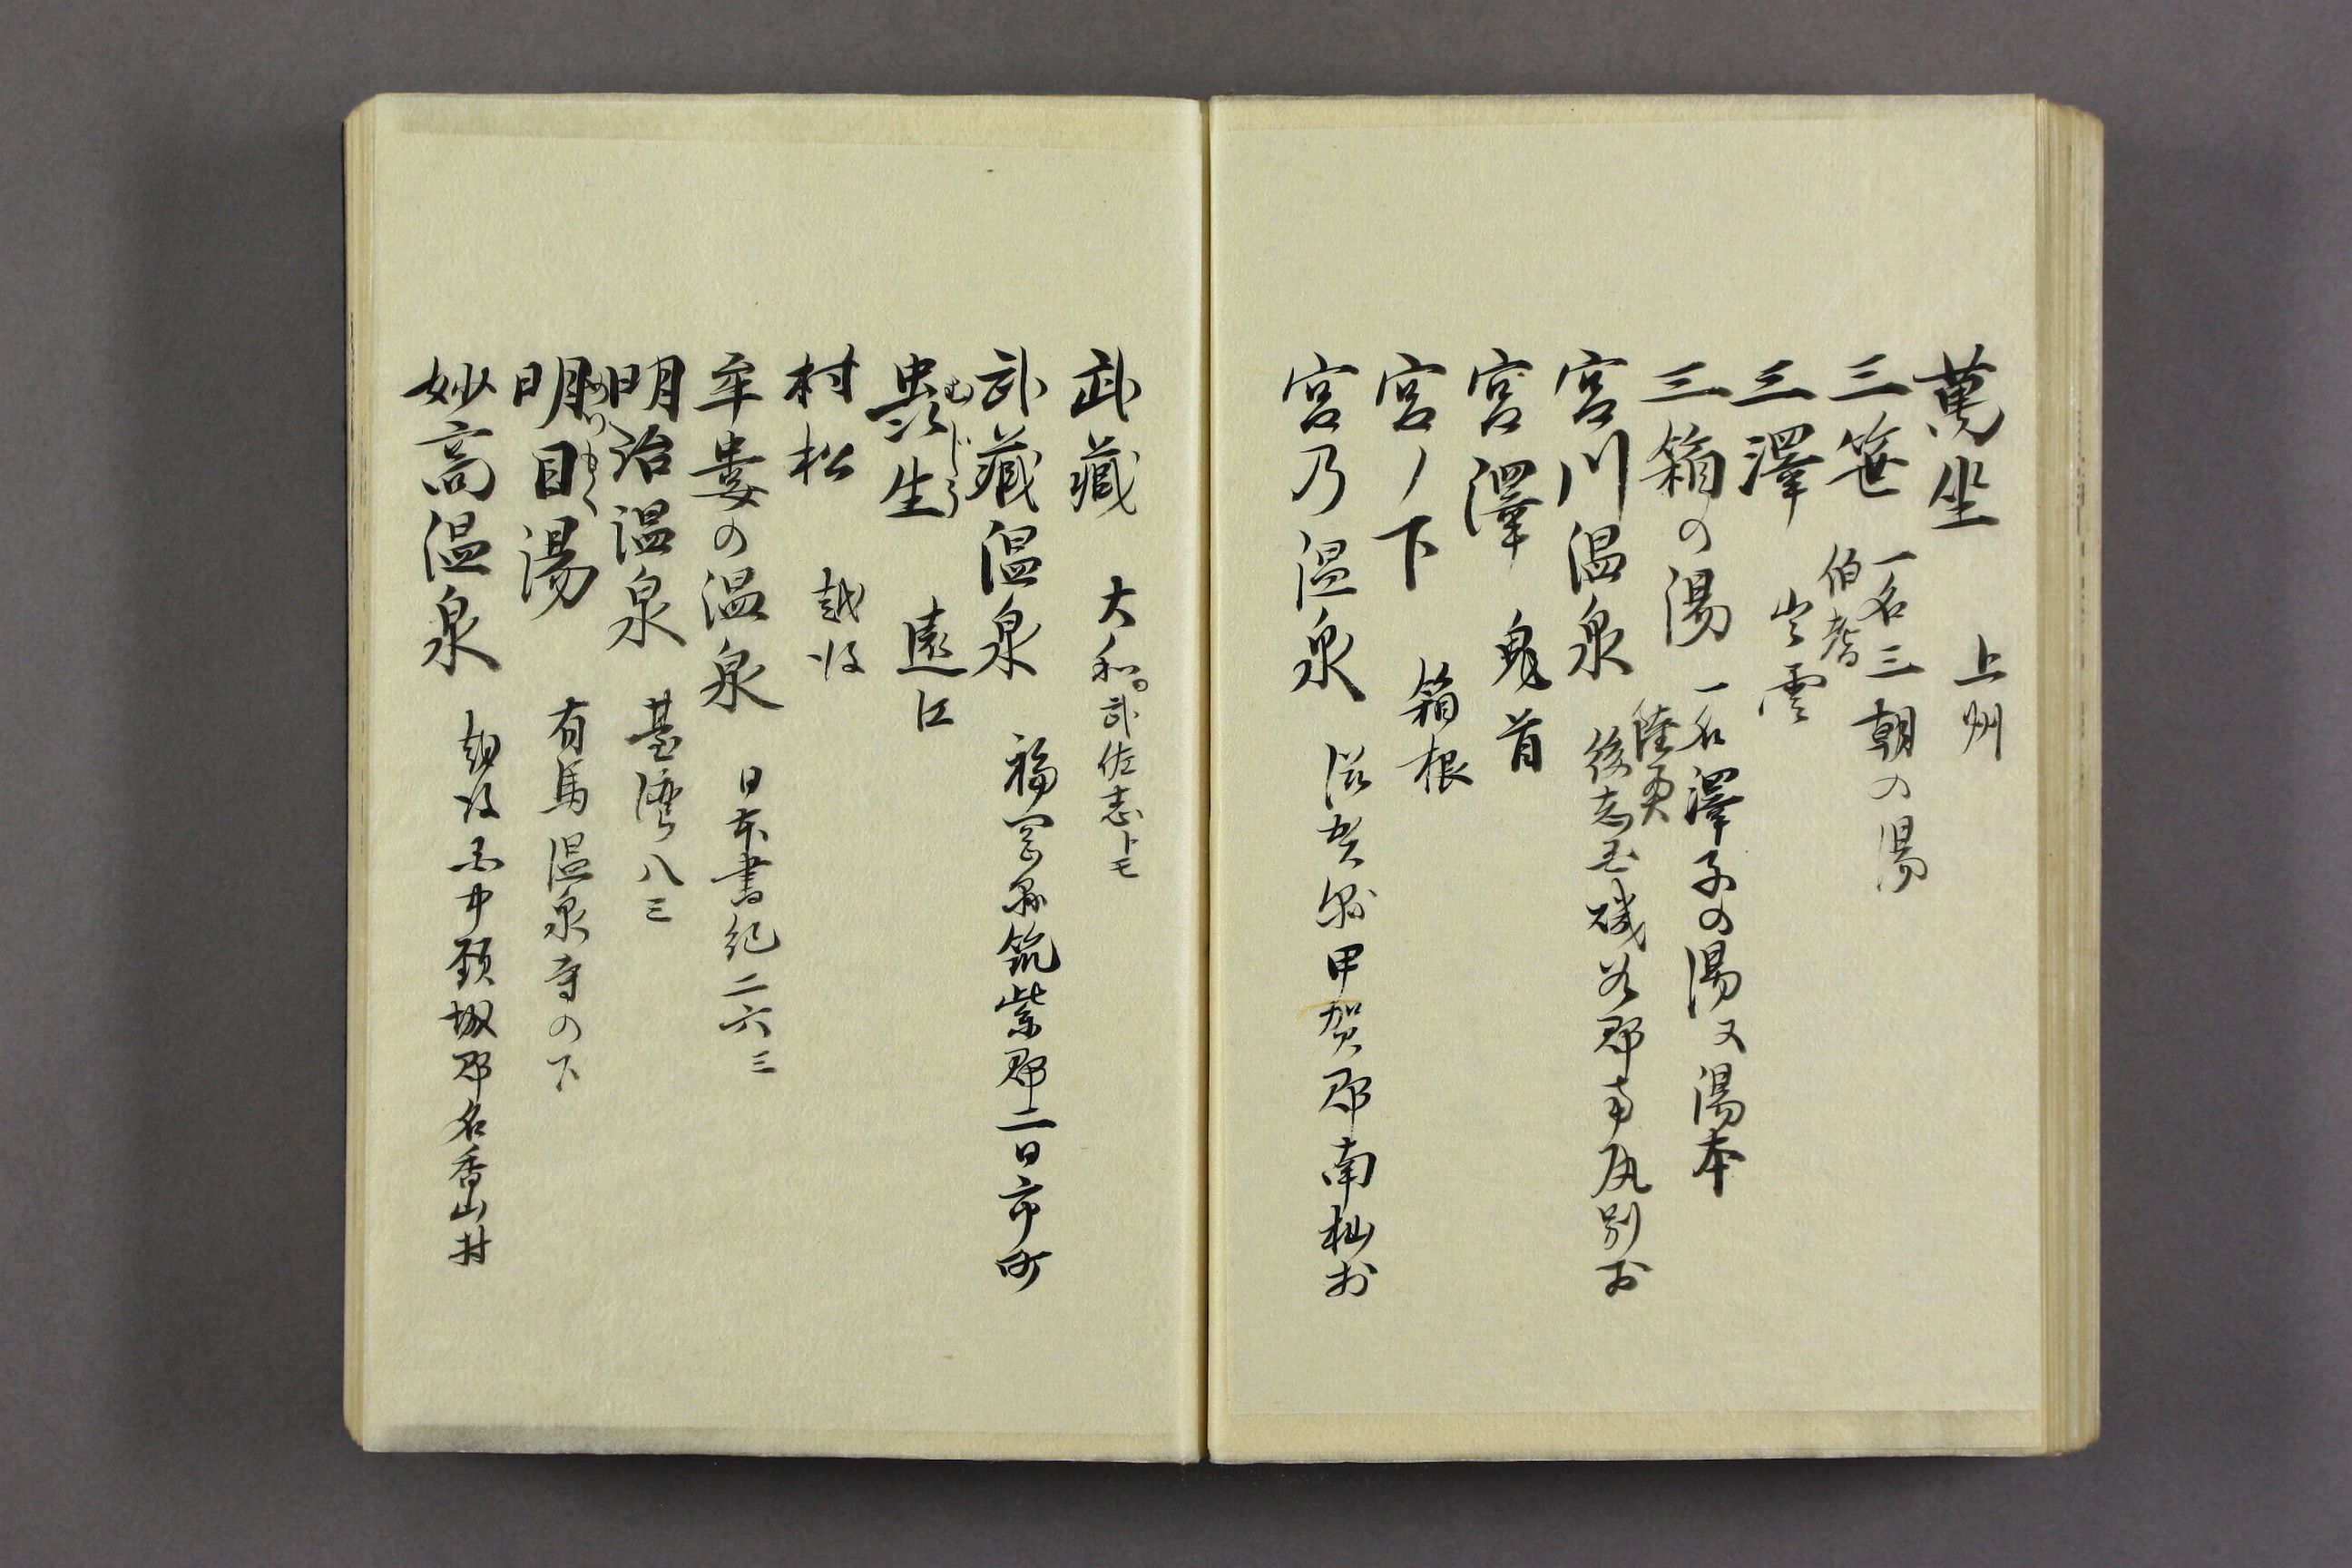 萬坐 上州
三笹 一名三朝の湯
伯耆
三澤 出雲
三箱の湯 一名澤子の湯又湯本
陸奥
宮川温泉 後志国磯谷郡南尻別村
宮澤 鬼首
宮ノ下 箱根
宮乃温泉 滋賀縣甲賀郡南杣村
武藏 大和 武佐志トモ
武藏温泉 福岡縣筑紫郡二日市町
蟲生 遠江
むじう
村松 越後
牟婁の温泉 日本書紀二六三
明治温泉 臺灣八三
明目湯 有馬温泉寺の下
めいもく
妙高温泉 越後国中頚城郡名香山村